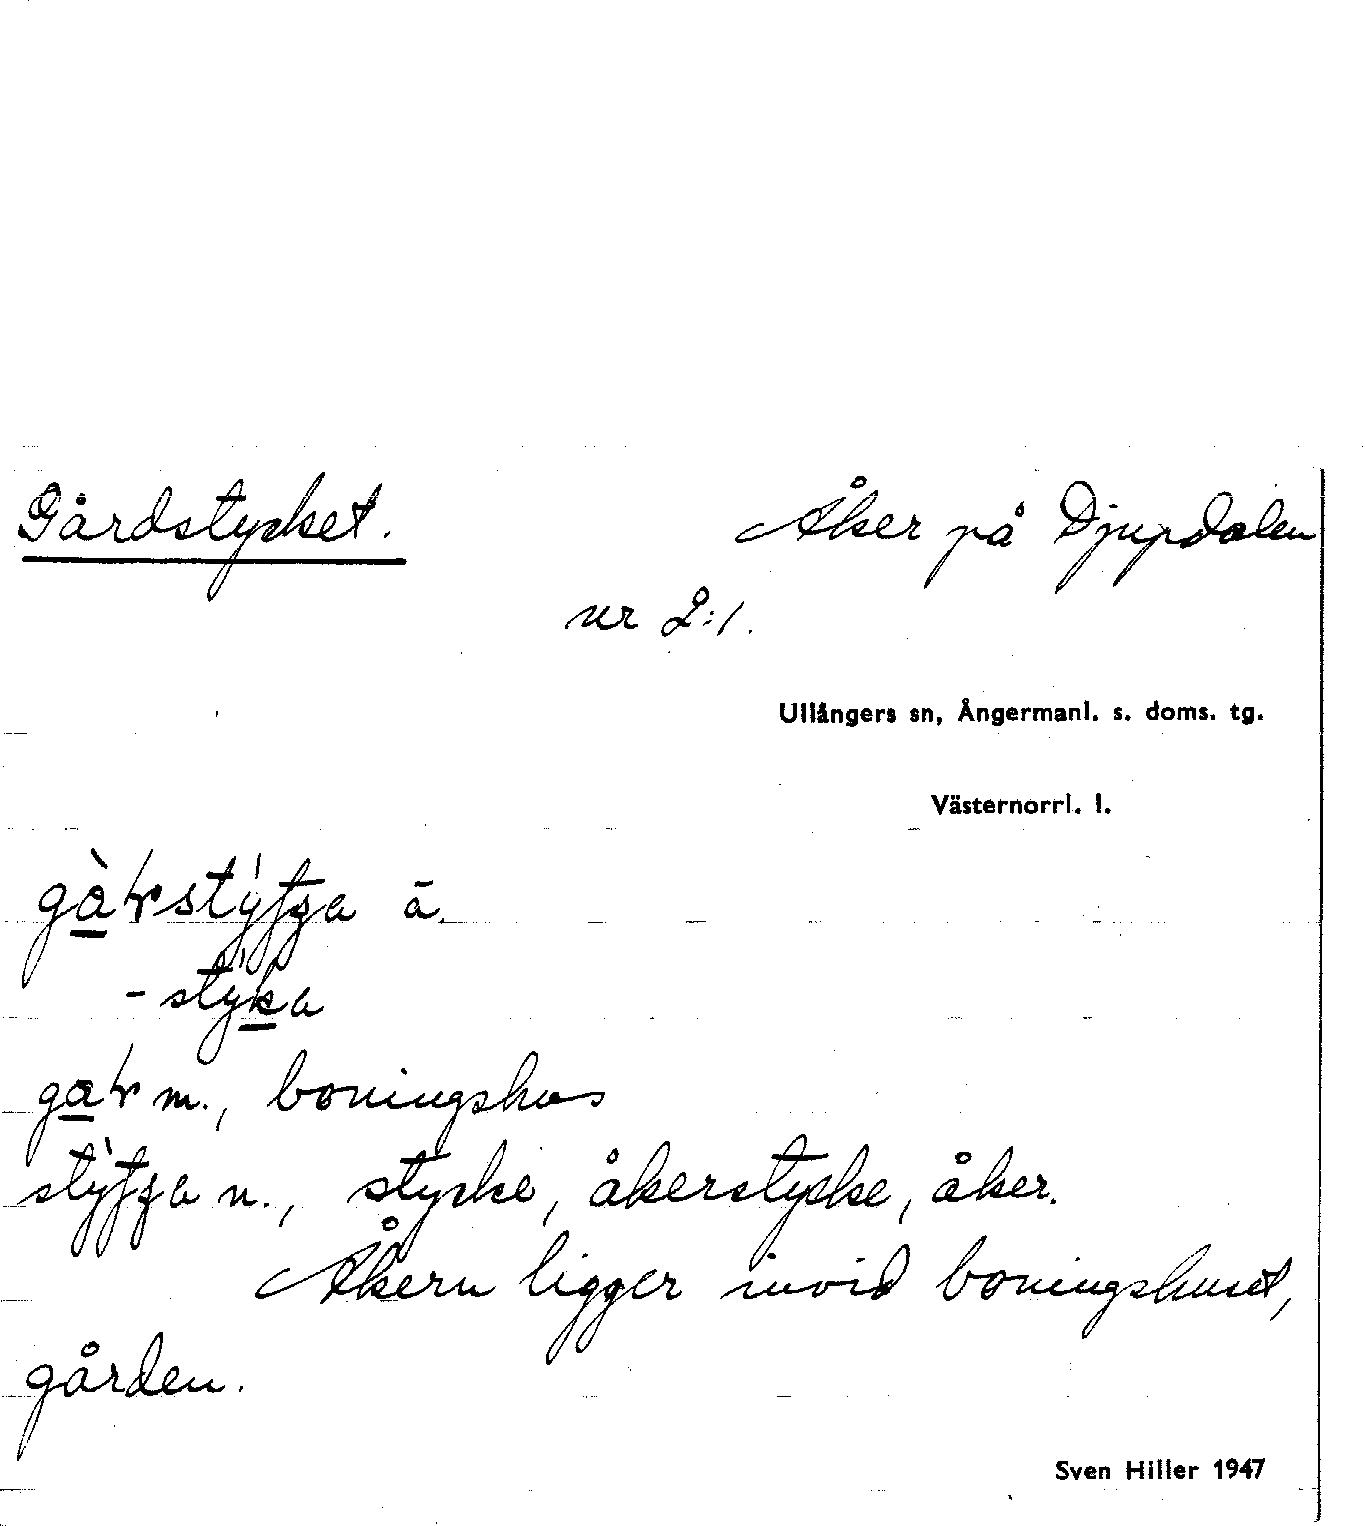 Gårdstycket. Åker på Djupdalen
nr 2:1.
Ullångers sn, Ångermanl. s. doms. tg.
Västernorrl. l.
ā.
m., boningshus
n., stycke, åkerstycke, åker.
Åkern ligger invid boningshuset,
gården.
Sven Hiller 1947